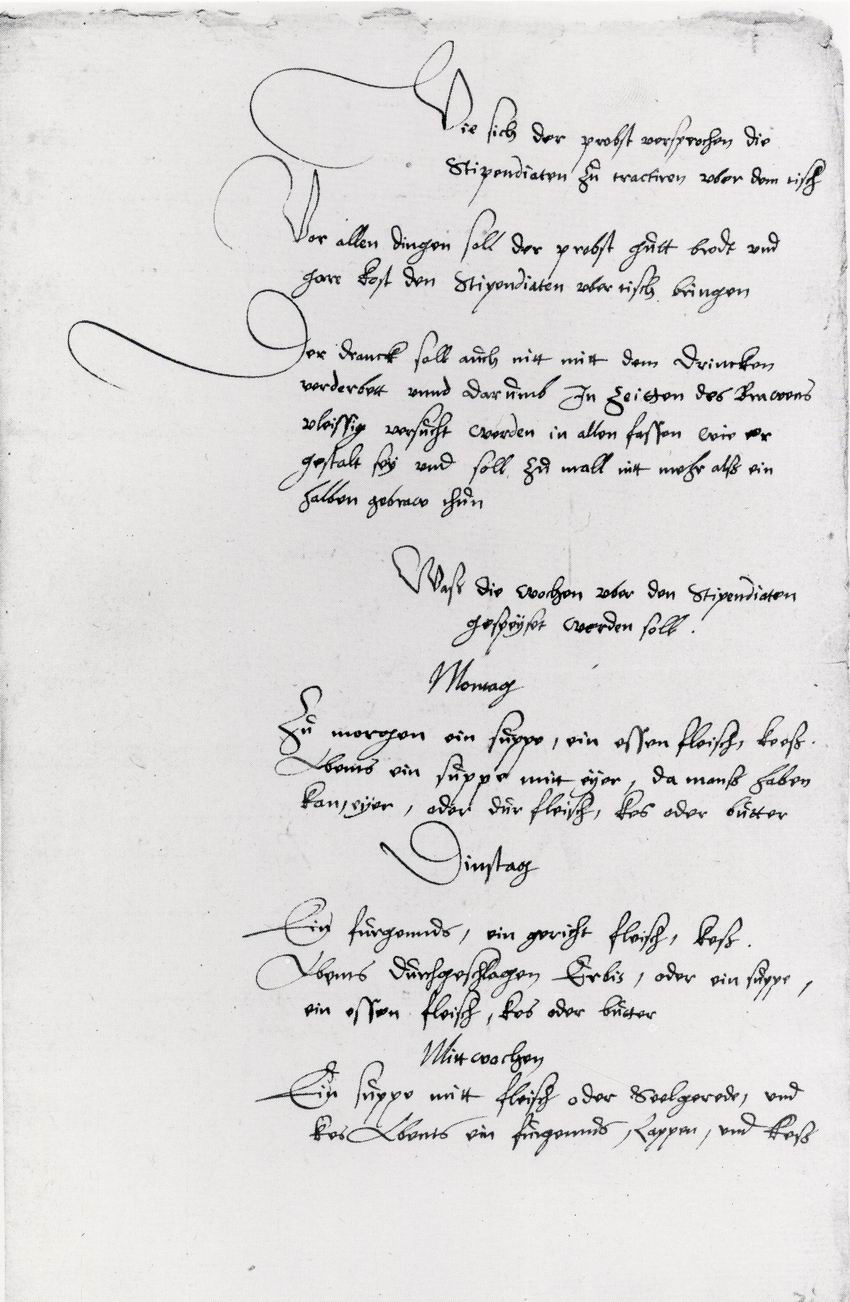 Wie sich der probst versprochen die
Stipendiaten zu tractiren vber dem tisch
Vor allen dingen soll der probst gutt brodt vnd
gare kost den Stipendiaten vber tisch bringen
Der dranck soll auch nitt mitt dem Drincken
verderbett vnnd darumb In Zeitten des Brawens
vleissig versucht werden in allen fassen wie er
gestalt sey vnd soll zu mall nitt mehr alß ein
halben gebraw thun
Waß die wochen vber den Stipendiaten
gespeyset werden soll.
Montag
Zu morgen ein suppe, ein essen fleisch, keeß.
Abents ein suppe mitt eyer, da manß haben
kan, eyer, oder dur fleisch, kes oder butter
Dinstag
Ein furgemuds, ein gericht fleisch, keß.
Abents durchgeschlagen Erbis, oder ein suppe,
ein essen fleisch, kes oder butter
Mittwochen
Ein suppe mitt fleisch oder Seelgerede, vnd
kes Abents ein , Lappen, vnd keß